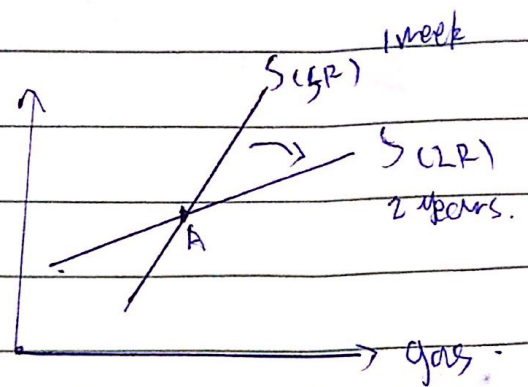 1 week
S(SR)
S(LR)
2 years.
A
gas.